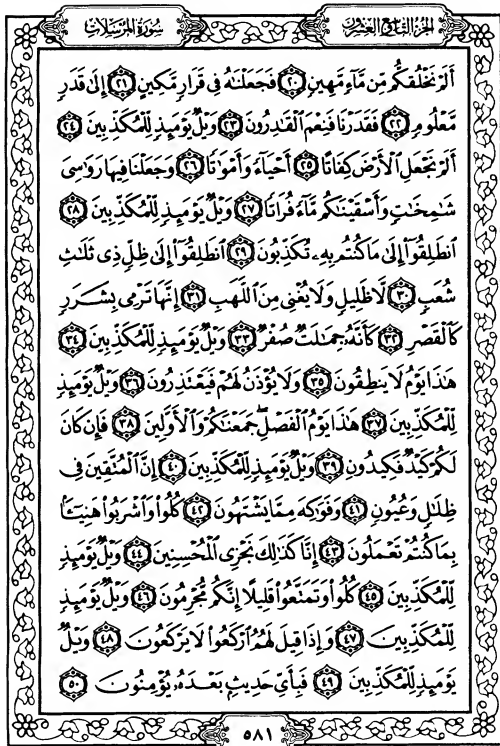 سُورَةُ المُرْسَلَات الجُزْءُ التَّاسِعُ وَالعِشْرُونَ
أَلَمْ نَخْلُقكُّم مِّن مَّآءٍ مَّهِينٍ ٢٠ فَجَعَلْنَٰهُ فِى قَرَارٍ مَّكِينٍ ٢١ إِلَىٰ قَدَرٍ
مَّعْلُومٍ ٢٢ فَقَدَرْنَا فَنِعْمَ ٱلْقَٰدِرُونَ ٢٣ وَيْلٌ يَوْمَئِذٍ لِّلْمُكَذِّبِينَ ٢٤
أَلَمْ نَجْعَلِ ٱلْأَرْضَ كِفَاتًا ٢٥ أَحْيَآءً وَأَمْوَٰتًا ٢٦ وَجَعَلْنَا فِيهَا رَوَٰسِىَ
شَٰمِخَٰتٍ وَأَسْقَيْنَٰكُم مَّآءً فُرَاتًا ٢٧ وَيْلٌ يَوْمَئِذٍ لِّلْمُكَذِّبِينَ ٢٨
ٱنطَلِقُوٓا۟ إِلَىٰ مَا كُنتُم بِهِۦ تُكَذِّبُونَ ٢٩ ٱنطَلِقُوٓا۟ إِلَىٰ ظِلٍّ ذِى ثَلَٰثِ
شُعَبٍ ٣٠ لَّا ظَلِيلٍ وَلَا يُغْنِى مِنَ ٱللَّهَبِ ٣١ إِنَّهَا تَرْمِى بِشَرَرٍ
كَٱلْقَصْرِ ٣٢ كَأَنَّهُۥ جِمَٰلَتٌ صُفْرٌ ٣٣ وَيْلٌ يَوْمَئِذٍ لِّلْمُكَذِّبِينَ ٣٤
هَٰذَا يَوْمُ لَا يَنطِقُونَ ٣٥ وَلَا يُؤْذَنُ لَهُمْ فَيَعْتَذِرُونَ ٣٦ وَيْلٌ يَوْمَئِذٍ
لِّلْمُكَذِّبِينَ ٣٧ هَٰذَا يَوْمُ ٱلْفَصْلِ ۖ جَمَعْنَٰكُمْ وَٱلْأَوَّلِينَ ٣٨ فَإِن كَانَ
لَكُمْ كَيْدٌ فَكِيدُونِ ٣٩ وَيْلٌ يَوْمَئِذٍ لِّلْمُكَذِّبِينَ ٤٠ إِنَّ ٱلْمُتَّقِينَ فِى
ظِلَٰلٍ وَعُيُونٍ ٤١ وَفَوَٰكِهَ مِمَّا يَشْتَهُونَ ٤٢ كُلُوا۟ وَٱشْرَبُوا۟ هَنِيٓـًٔۢا
بِمَا كُنتُمْ تَعْمَلُونَ ٤٣ إِنَّا كَذَٰلِكَ نَجْزِى ٱلْمُحْسِنِينَ ٤٤ وَيْلٌ يَوْمَئِذٍ
لِّلْمُكَذِّبِينَ ٤٥ كُلُوا۟ وَتَمَتَّعُوا۟ قَلِيلًا إِنَّكُم مُّجْرِمُونَ ٤٦ وَيْلٌ يَوْمَئِذٍ
لِّلْمُكَذِّبِينَ ٤٧ وَإِذَا قِيلَ لَهُمُ ٱرْكَعُوا۟ لَا يَرْكَعُونَ ٤٨ وَيْلٌ
يَوْمَئِذٍ لِّلْمُكَذِّبِينَ ٤٩ فَبِأَىِّ حَدِيثٍۭ بَعْدَهُۥ يُؤْمِنُونَ ٥٠
٥٨١